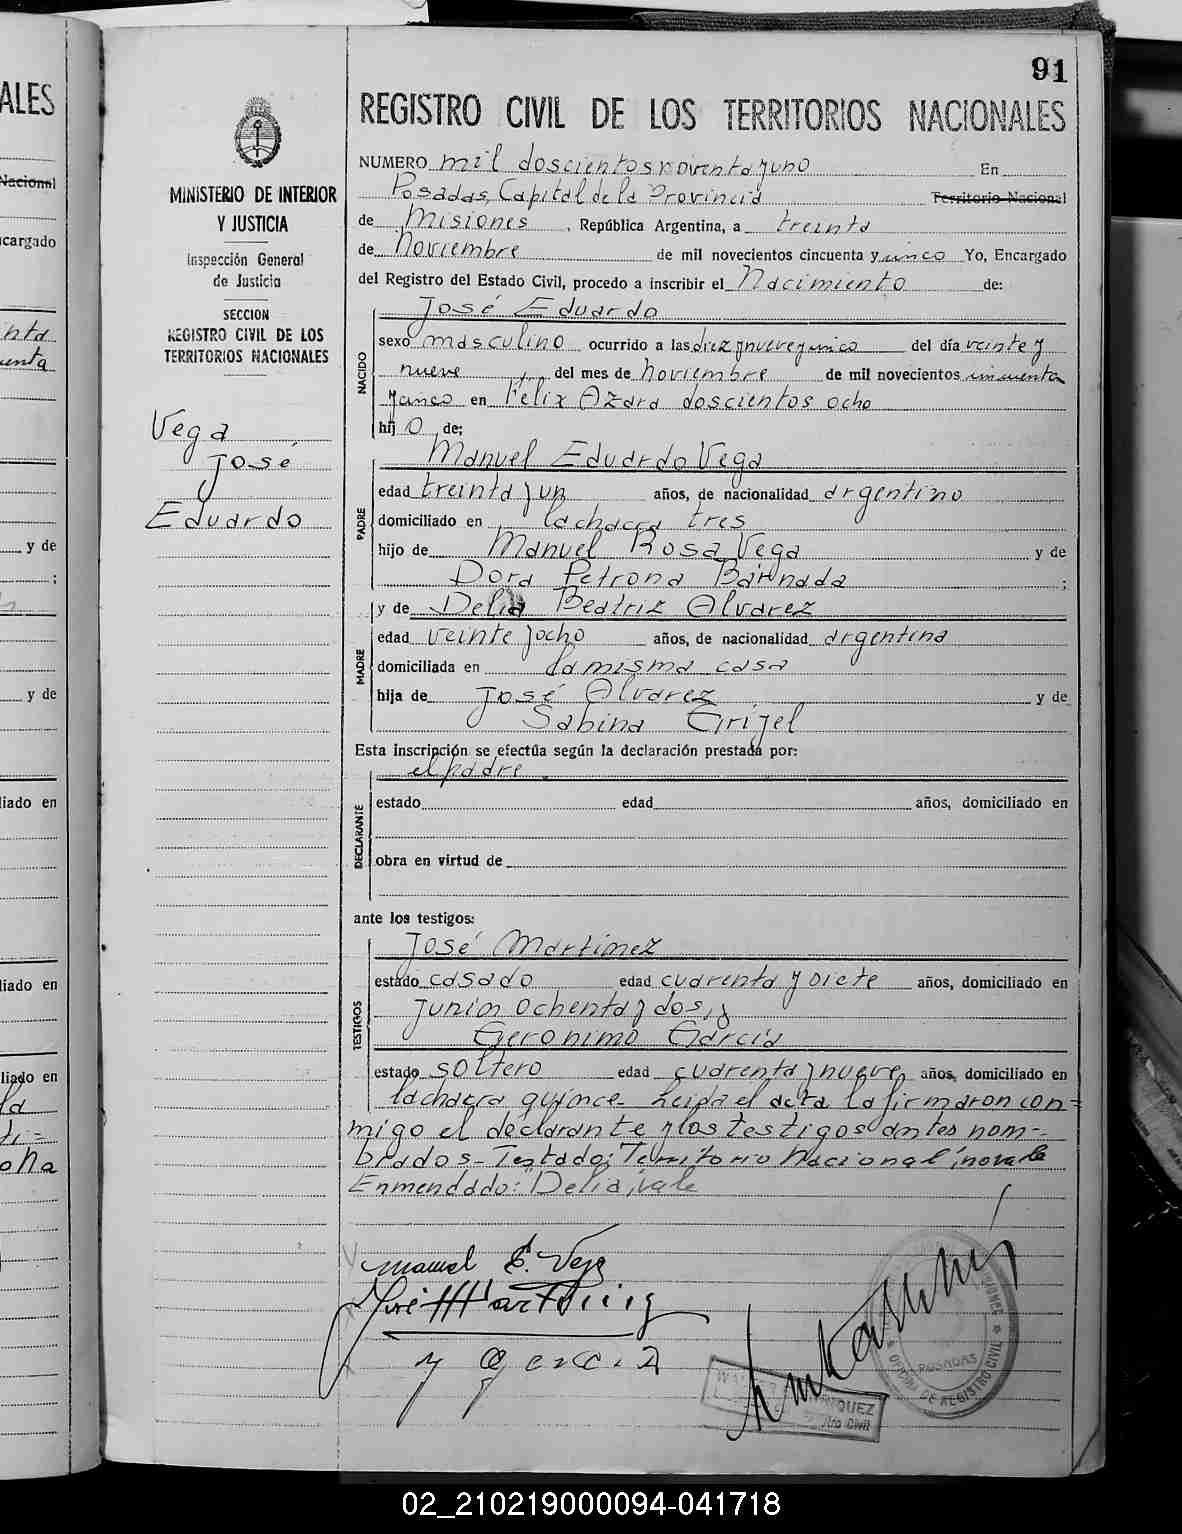 91
ALES
Nacional
cargado
REGISTRO CIVIL DE LOS TERRITORIOS NACIONALES
MINISTERIO DE INTERIOR
Y JUSTICIA
Inspección General
de Justicia
SECCION
REGISTRO CIVIL DE LOS
TERRITORIOS NACIONALES
Vega
José
Eduardo
NUMERO mil doscientos noventa y uno En
Posadas, Capital de la Provincia Territorio Nacional
de Misiones, República Argentina, a treinta
de Noviembre de mil novecientos cincuenta y cinco Yo, Encargado
del Registro del Estado Civil, procedo a inscribir el Nacimiento de:
José Eduardo
NACIDO
sexo masculino ocurrido a las diez y nueve y cinco del día veinte y
nueve del mes de Noviembre de mil novecientos cincuenta
y cinco en Félix Azara doscientos ocho
hijo de:
Manuel Eduardo Vega
PADRE
edad treinta y un años, de nacionalidad argentino
domiciliado en la chacra tres
hijo de Manuel Rosa Vega y de
Dora Petrona Barnada ;
y de Delia Beatriz Alvarez
MADRE
edad veinte y ocho años, de nacionalidad argentina
domiciliada en la misma casa
hija de José Alvarez y de
Sabina Grijel
Esta inscripción se efectúa según la declaración prestada por:
el padre.
DECLARANTE
estado edad años, domiciliado en
obra en virtud de
ante los testigos:
José Martinez
TESTIGOS
estado casado edad cuarenta y siete años, domiciliado en
Junin ochenta y dos, y
Geronimo Garcia
estado soltero edad cuarenta y nueve años, domiciliado en
la chacra quince- Leida el acta la firmaron con=
migo el declarante y los testigos antes nom-
brados- Testado: Territorio Nacional; no vale
Enmendado: "Delia; vale
Manuel E. Vega
José Martinez
OFICINA DE REGISTRO CIVIL
POSADAS
02_210219000094-041718